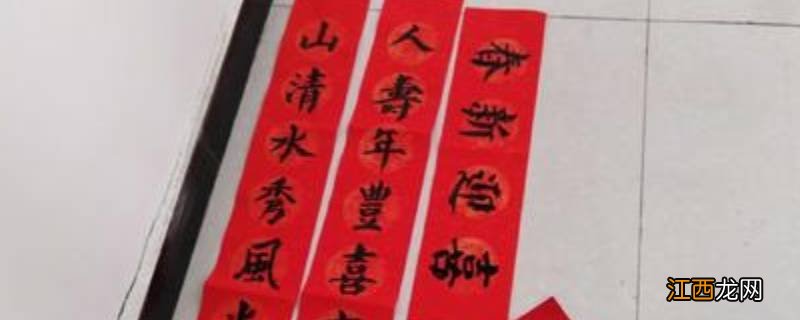 山清水秀風
人壽年豐喜
喜迎新春
江西龙网